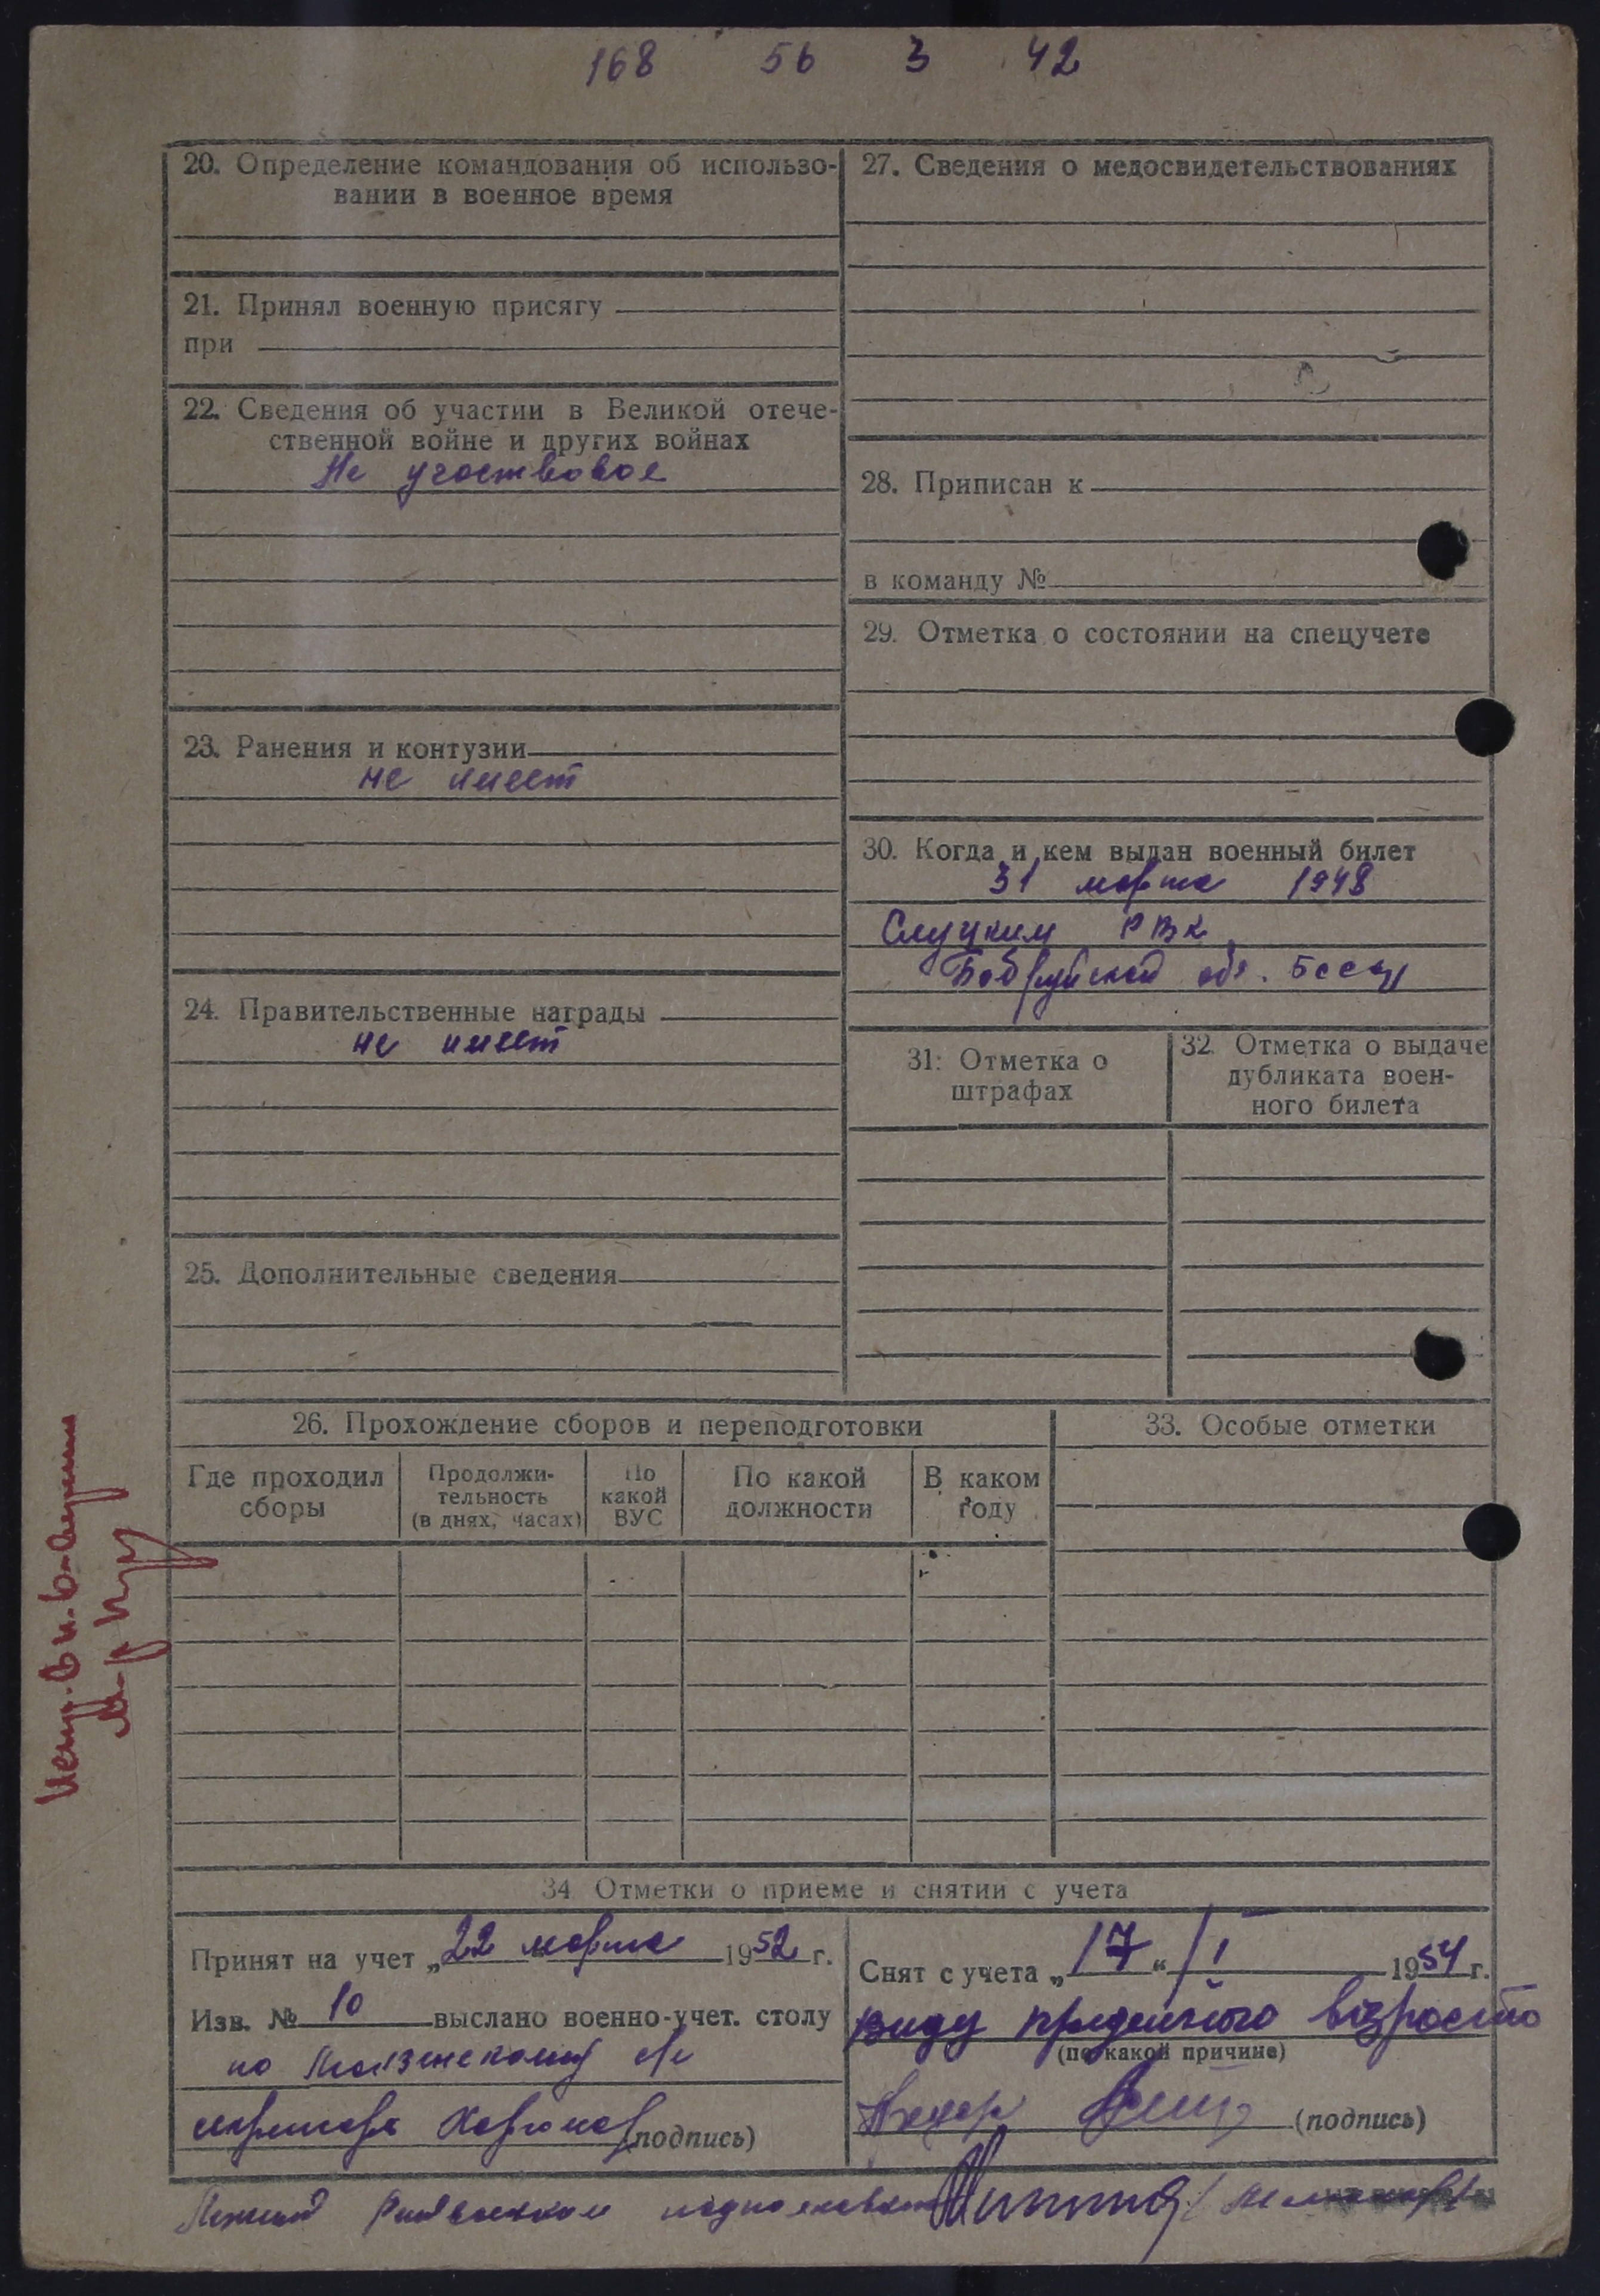 168 56 3 42
20. Определение командования об использо-
вании в военное время
21. Принял военную присягу
при
22. Сведения об участии в Великой отече-
ственной войне и других войнах
Не участвовал
23. Ранения и контузии
не имеет
24. Правительственные награды
не имеет
25. Дополнительные сведения
27. Сведения о медосвидетельствованиях
28. Приписан к
в команду №
29. Отметка о состоянии на спецучете
30. Когда и кем выдан военный билет
31 марта 1948
Слуцким РВК
Бобруйской обл. БССР
31. Отметка о
штрафах
32. Отметка о выдаче
дубликата воен-
ного билета
26. Прохождение сборов и переподготовки
Где проходил
сборы
Продолжи-
тельность
(в днях, часах)
По
какой
ВУС
По какой
должности
В каком
году
33. Особые отметки
34 Отметки о приеме и снятии с учета
Принят на учет „22 марта 1952 г.
Изв. № 10 выслано военно-учет. столу
по
(подпись)
Снят с учета „17“ I 1954 г.
ввиду предельного возраста
(по какой причине)
(подпись)
подполковник